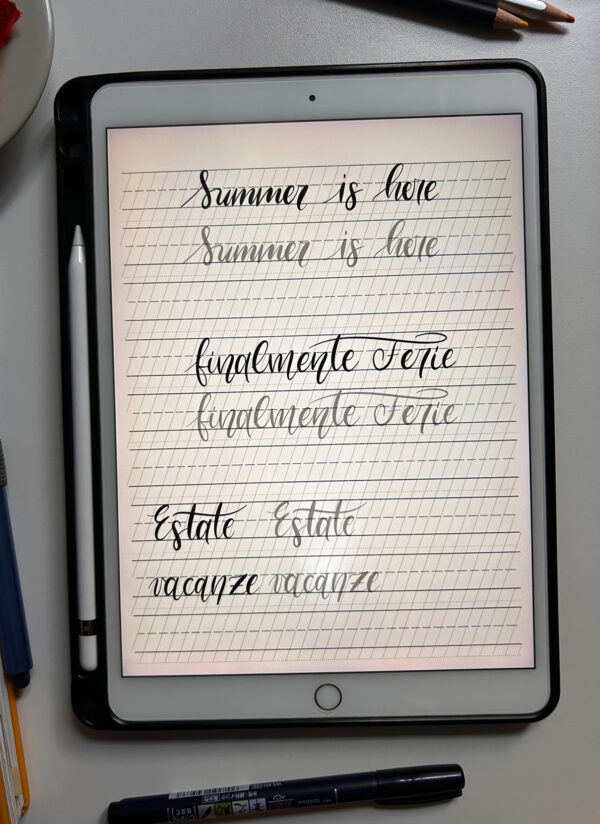 Summer is here
Summer is here
finalmente Ferie
finalmente Ferie
Estate Estate
vacanze vacanze